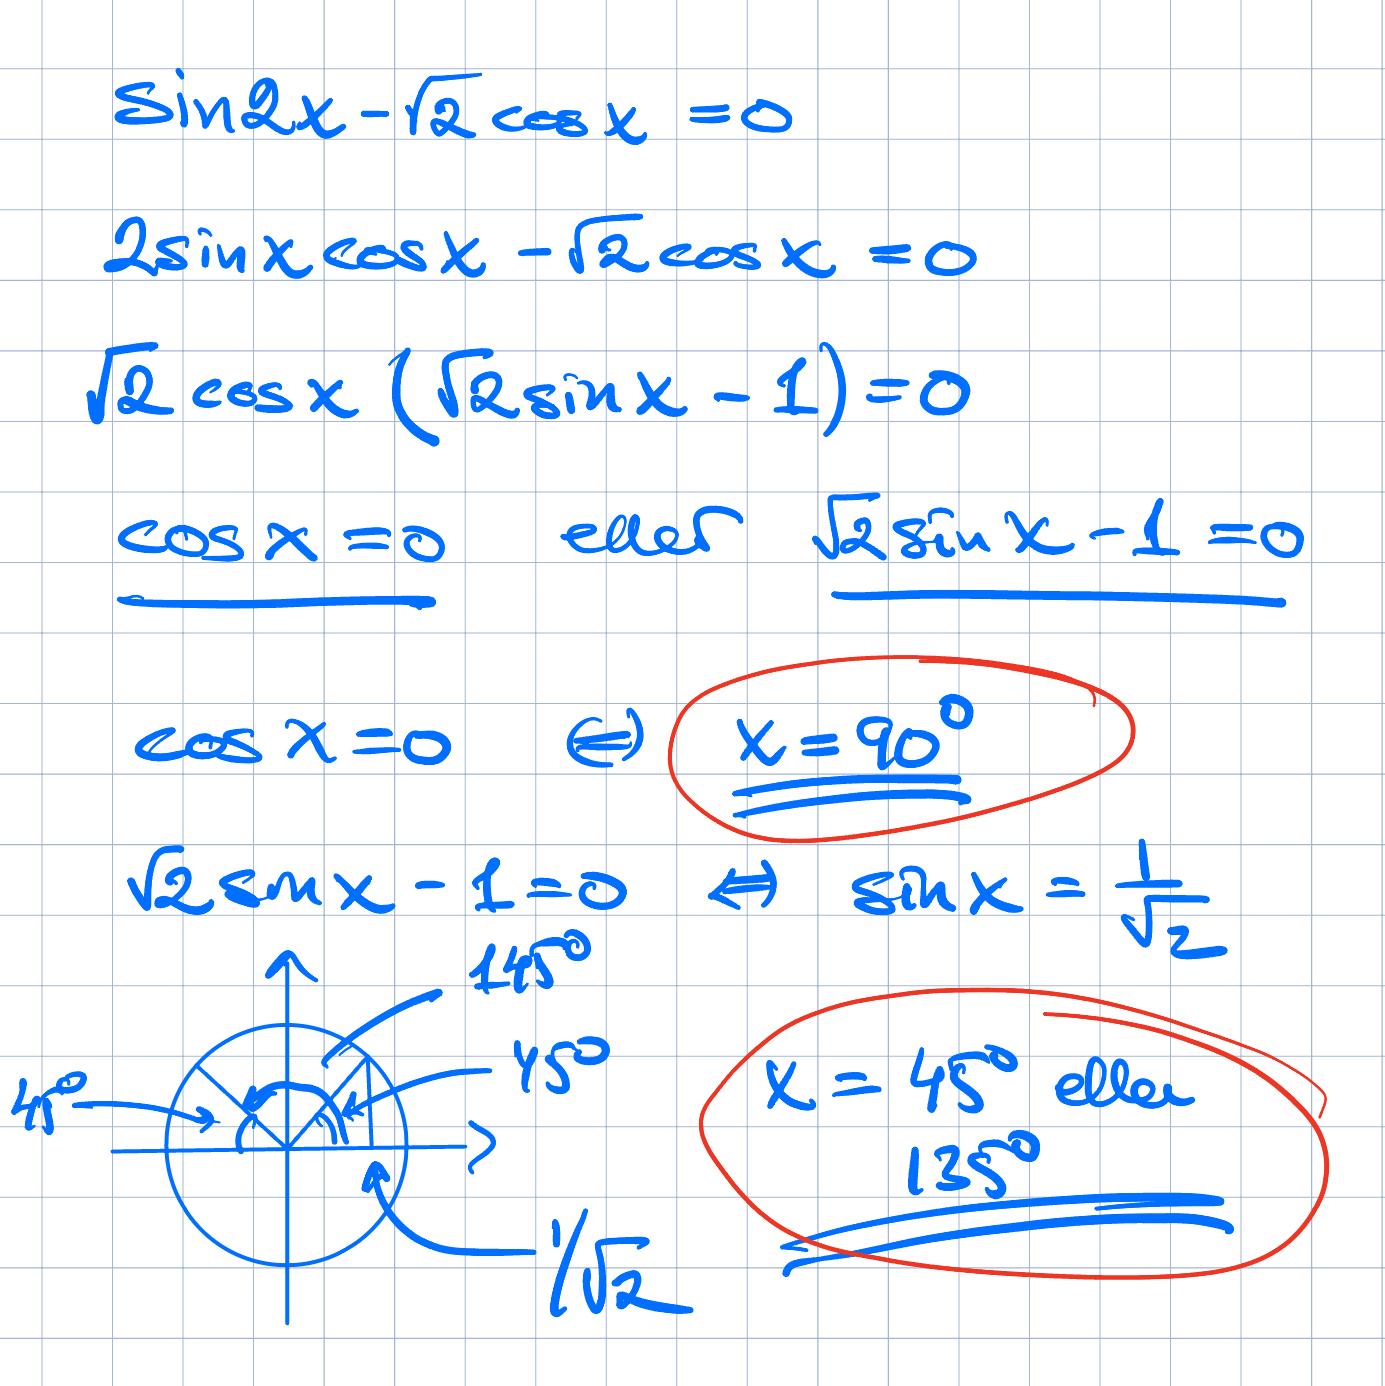 sin2x - √2 cos x = 0
2 sin x cos x - √2 cos x = 0
√2 cos x (√2 sin x - 1) = 0
cos x = 0 eller √2 sin x - 1 = 0
cos x = 0 ⇔ x = 90°
√2 sin x - 1 = 0 ⇔ sin x = 1/√2
145°
45°
45°
x = 45° eller
135°
1/√2